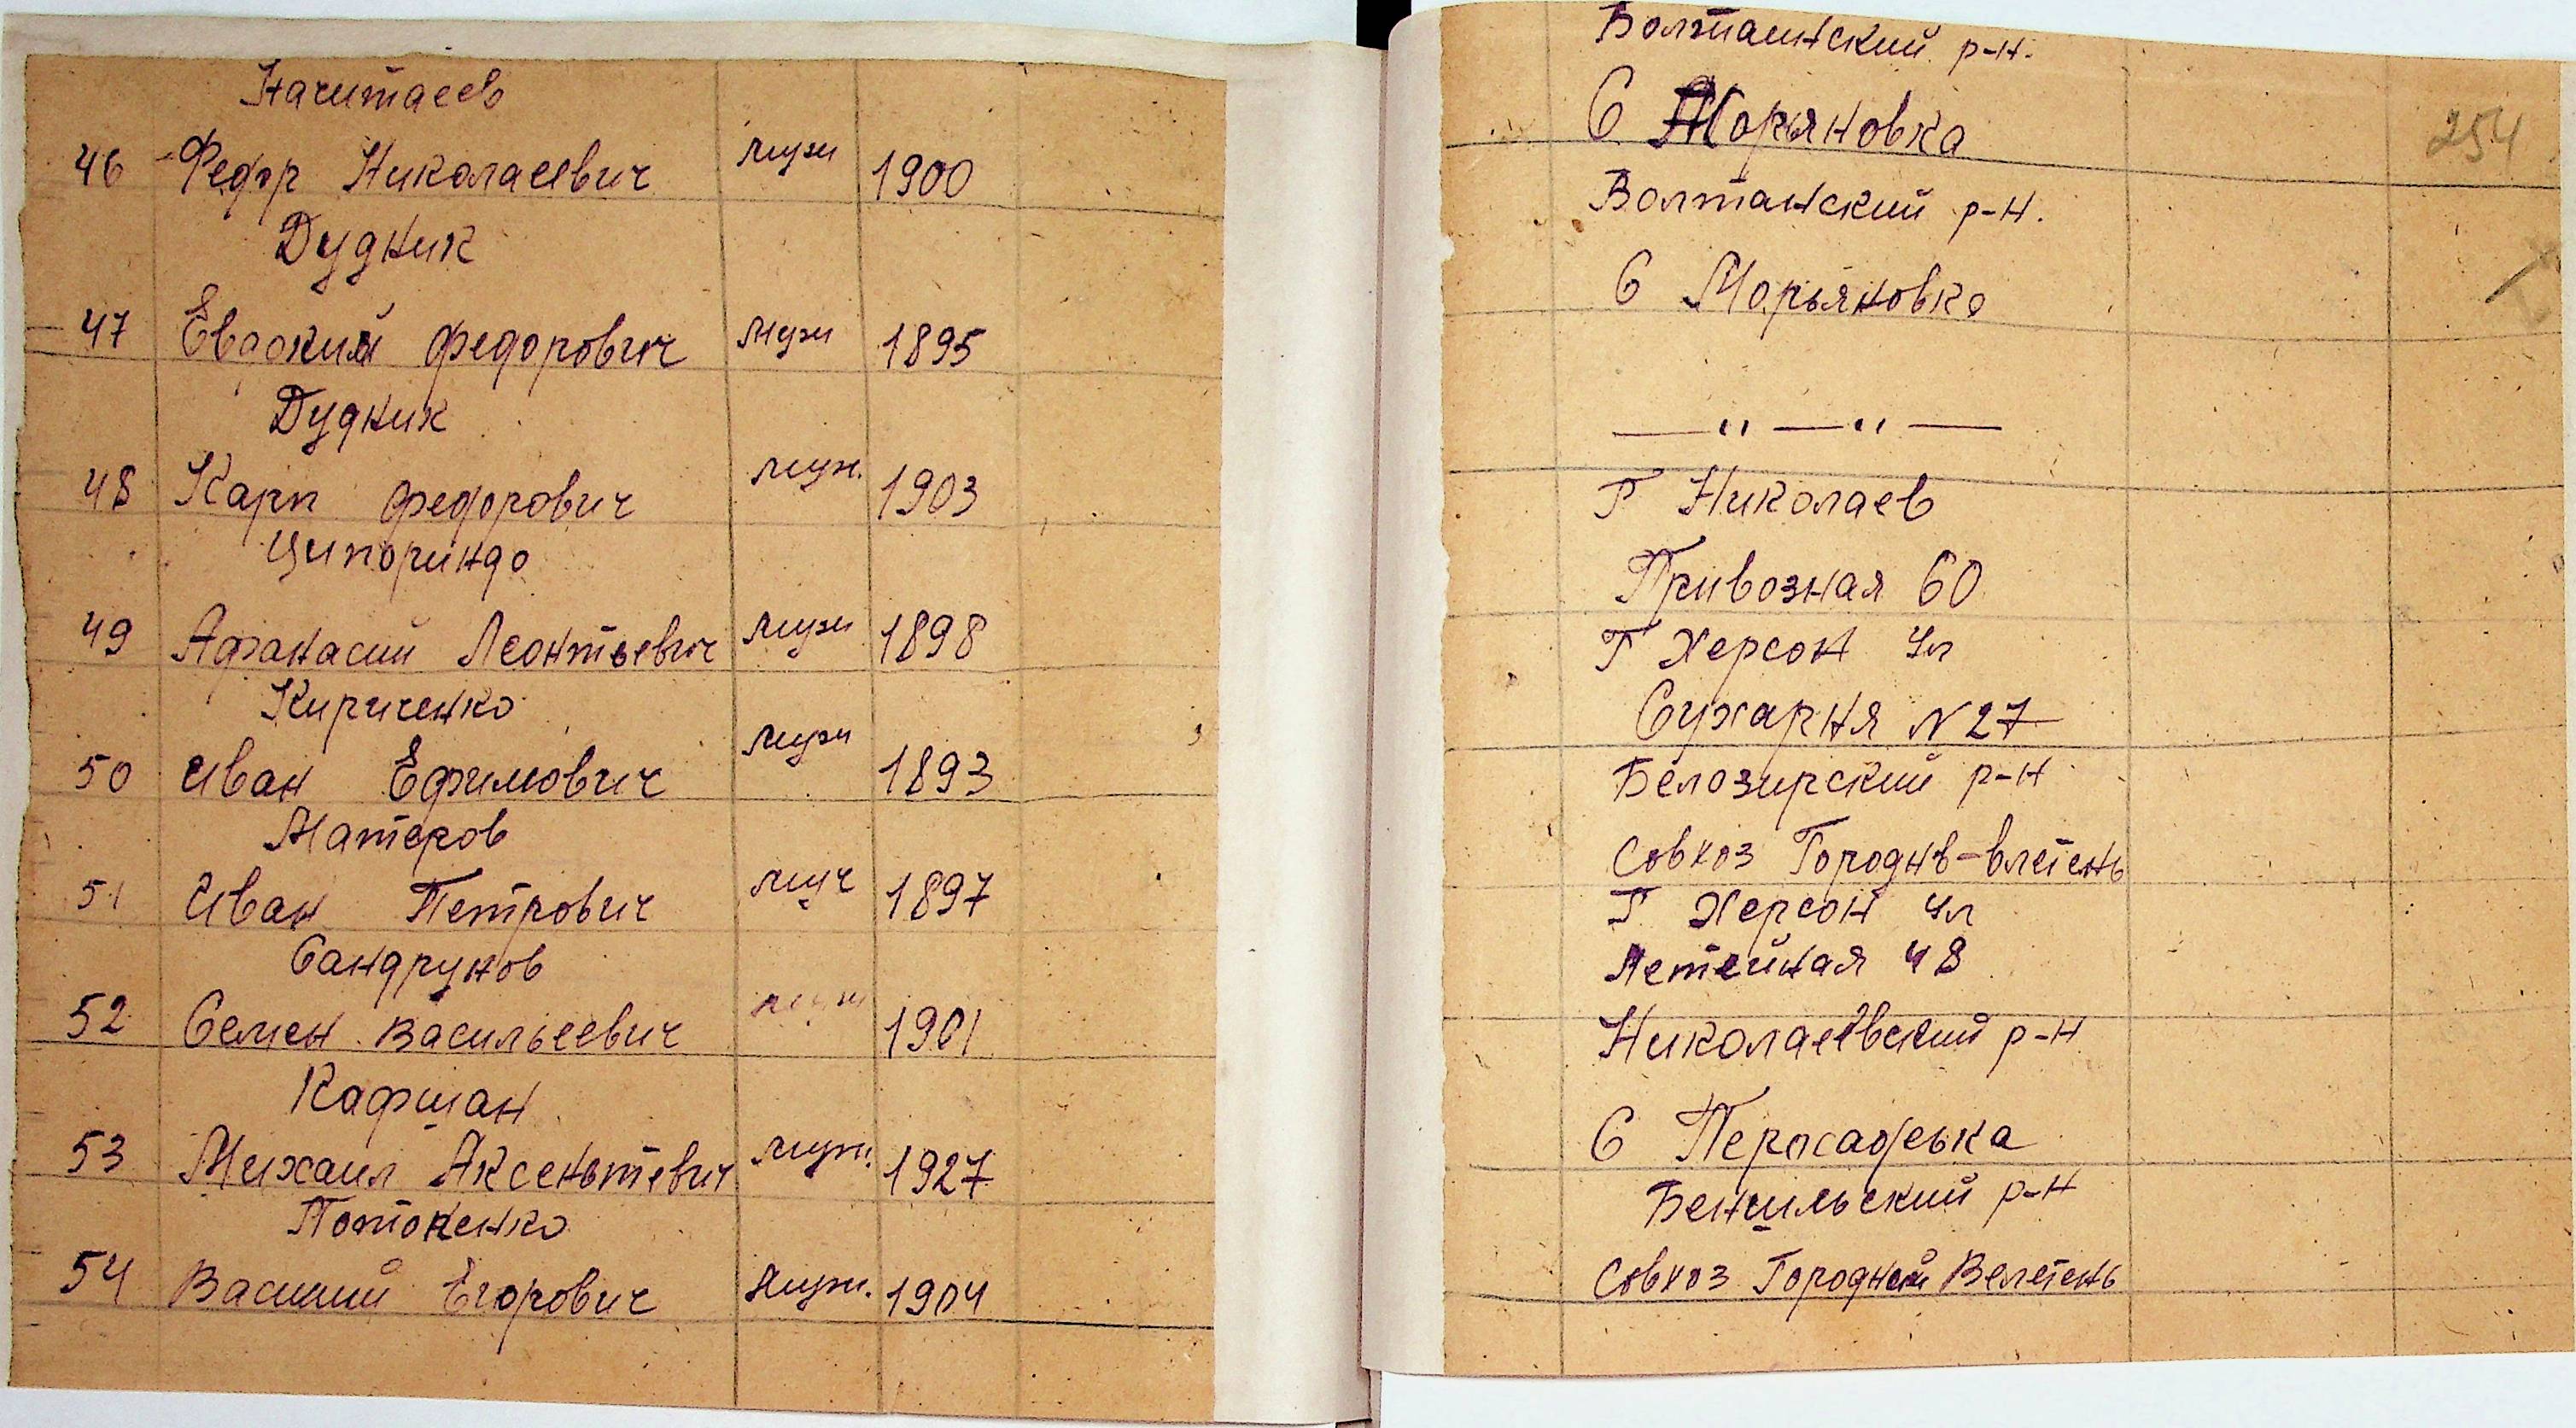 Начитаев
46 Федор Николаевич муж 1900
Дудник
47 Евдоким Федорович муж 1895
Дудник
48 Карп Федорович муж. 1903
Ципориндо
49 Афанасий Леонтьевич муж 1898
Кириченко
50 Иван Ефимович муж 1893
Матеров
51 Иван Петрович муж 1897
Сандрунов
52 Семен Васильеевич муж 1901
Кафшан
53 Михаил Аксеньтевич муж. 1927
Потоненко
54 Василий Егорович муж. 1904
Болташтский р-н.
С Морьяновка
254
Волтанский р-н.
С Морьяновка
—〃—〃—
Г Николаев
Привозная 60
Г Херсон Ул
Сухарня N 27
Белозирский р-н
Совхоз Городнв-влетень
Г Херсон Ул
Летейная 48
Николаевский р-н
С
Беншильский р-н
Совхоз Городней Велетень